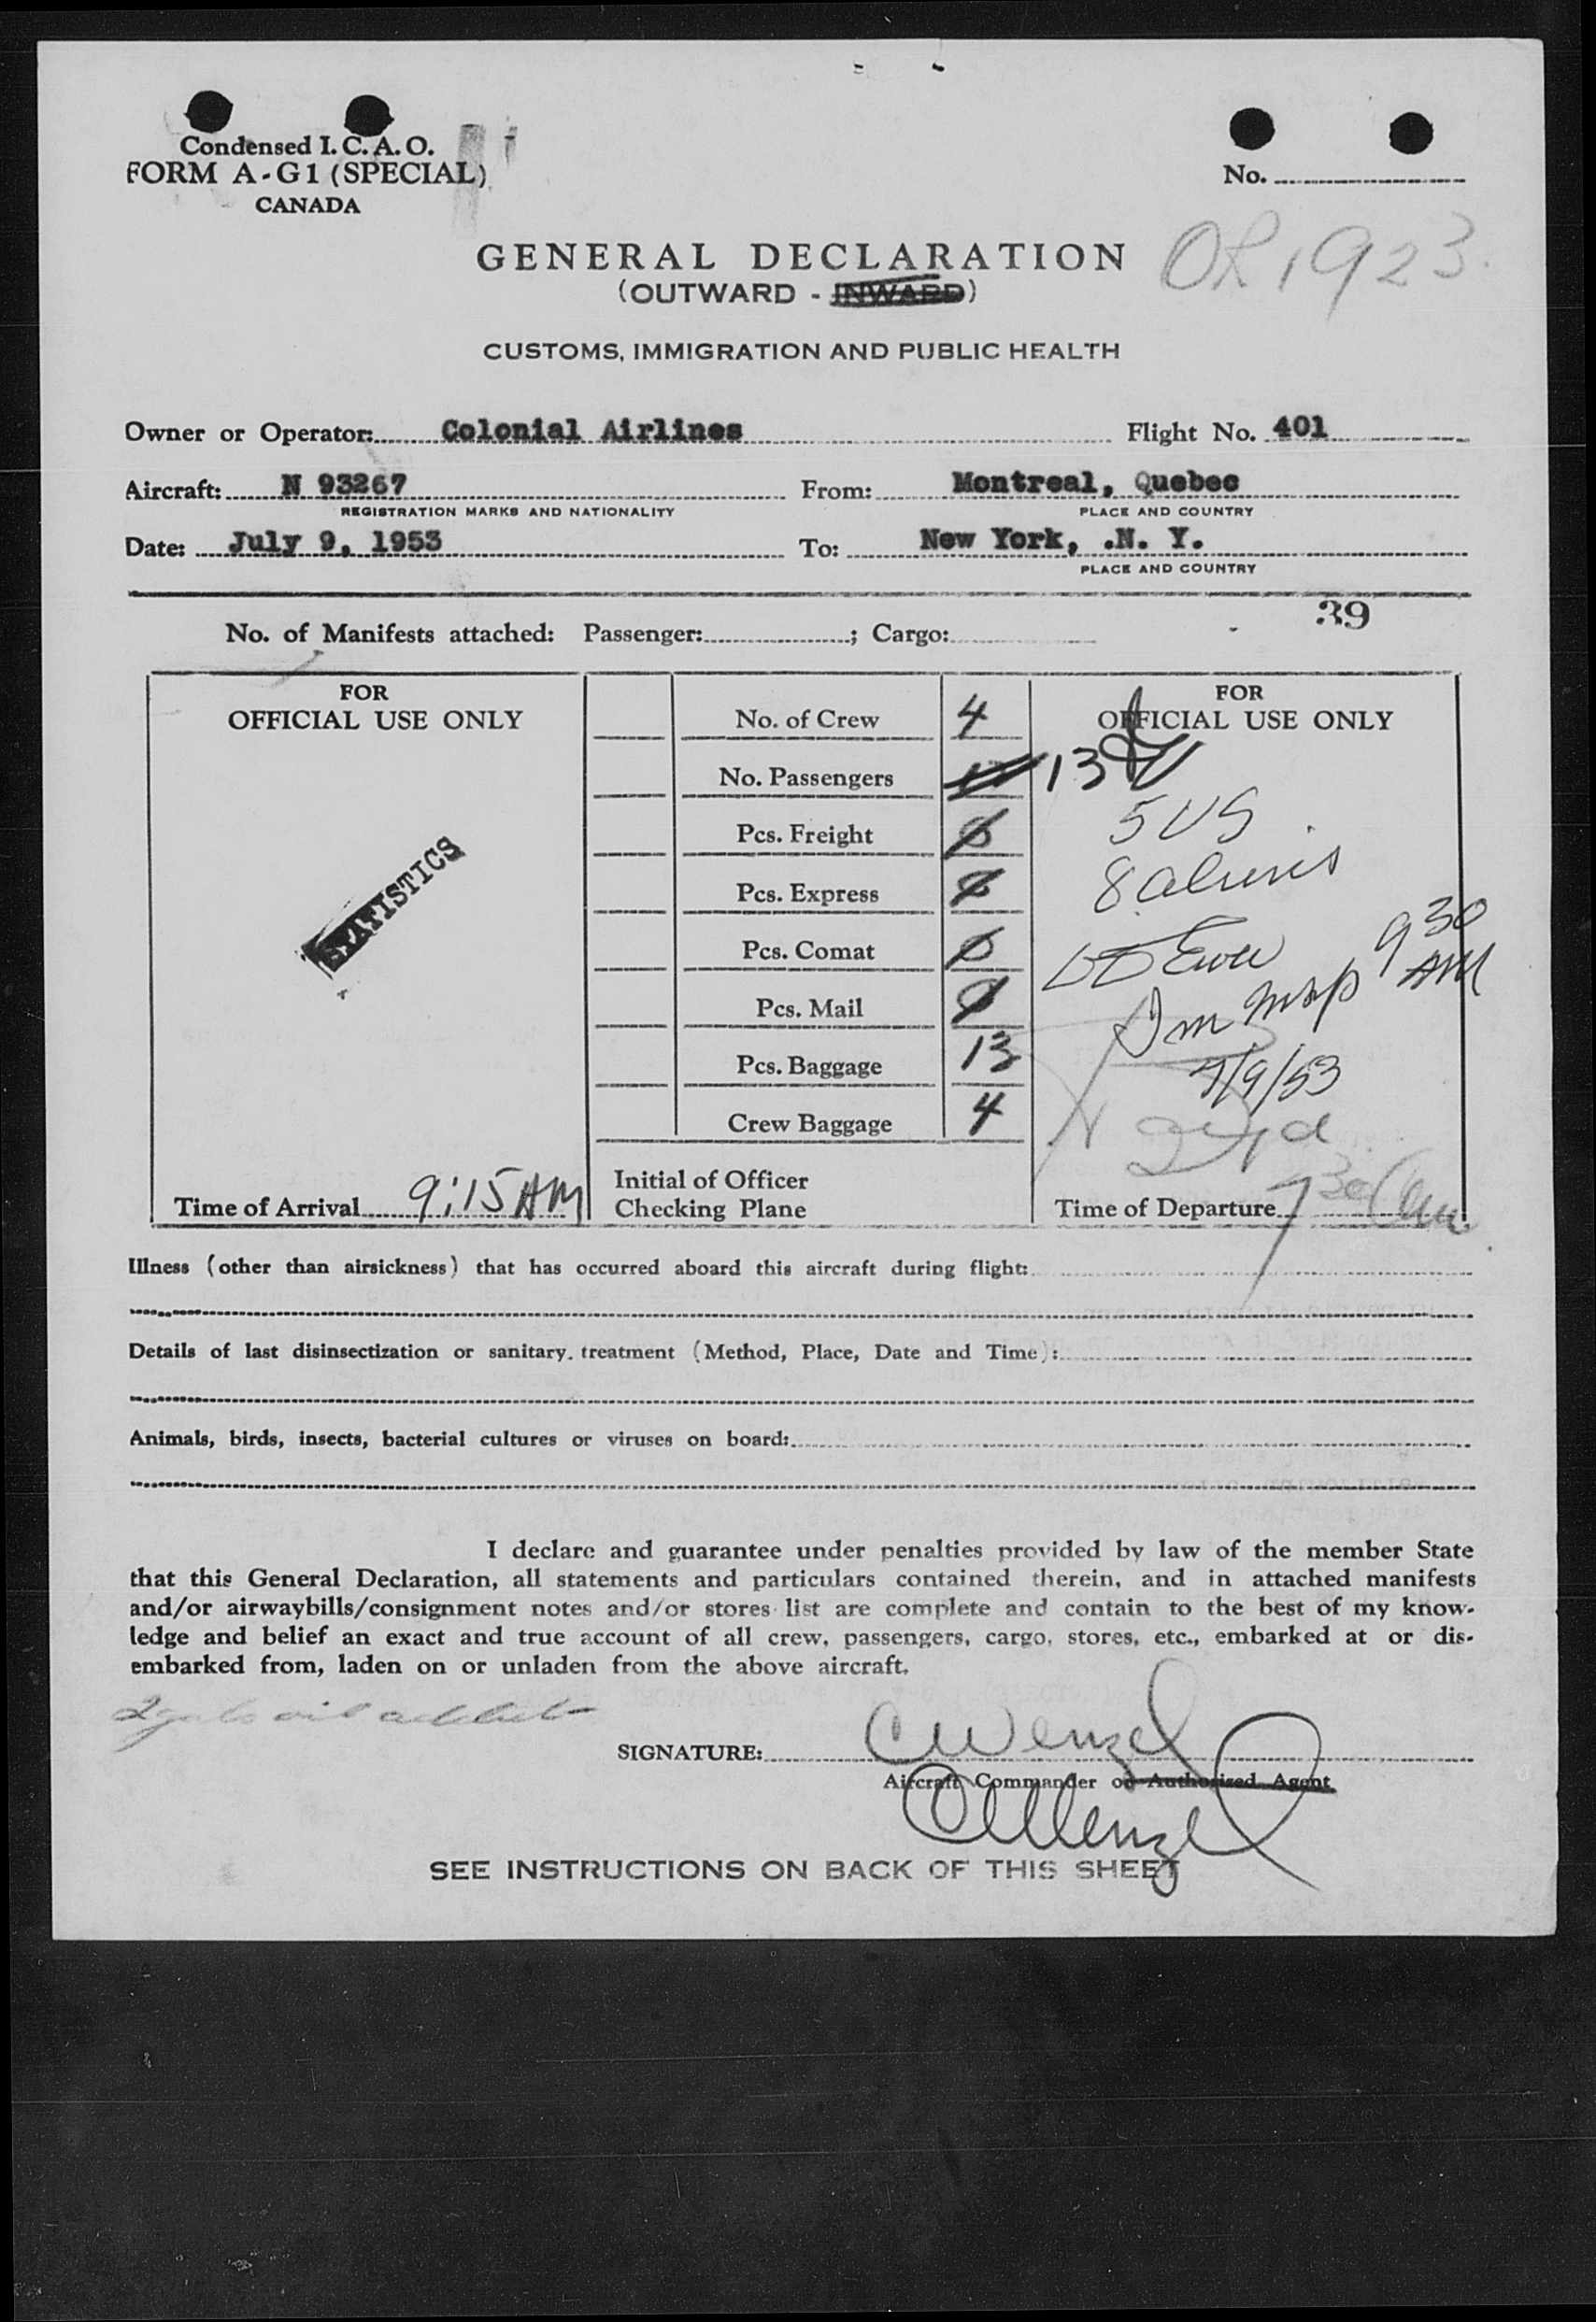 Condensed I. C. A. O.
FORM A-G1 (SPECIAL)
CANADA
No.
OR 1923.
GENERAL DECLARATION
(OUTWARD - INWARD)
CUSTOMS, IMMIGRATION AND PUBLIC HEALTH
Owner or Operator: Colonial Airlines Flight No. 401
Aircraft: N 93267 From: Montreal, Quebec
REGISTRATION MARKS AND NATIONALITY PLACE AND COUNTRY
Date: July 9, 1953 To: New York, .N. Y.
PLACE AND COUNTRY
39
No. of Manifests attached: Passenger: ; Cargo:
FOR
OFFICIAL USE ONLY
STATISTICS
Time of Arrival 9:15 AM
No. of Crew 4
No. Passengers 13
Pcs. Freight 0
Pcs. Express 0
Pcs. Comat 0
Pcs. Mail 0
Pcs. Baggage 13
Crew Baggage 4
Initial of Officer
Checking Plane
FOR
OFFICIAL USE ONLY
5 US
8 aliens
9 30
AM
7/9/53
Time of Departure 7 30
Illness (other than airsickness) that has occurred aboard this aircraft during flight:
Details of last disinsectization or sanitary. treatment (Method, Place, Date and Time):
Animals, birds, insects, bacterial cultures or viruses on board:
I declare and guarantee under penalties provided by law of the member State
that this General Declaration, all statements and particulars contained therein, and in attached manifests
and/or airwaybills/consignment notes and/or stores list are complete and contain to the best of my know-
ledge and belief an exact and true account of all crew, passengers, cargo, stores, etc., embarked at or dis-
embarked from, laden on or unladen from the above aircraft.
SIGNATURE: C Wenzel
Aircraft Commander or Authorized Agent
C Wenzel
SEE INSTRUCTIONS ON BACK OF THIS SHEET